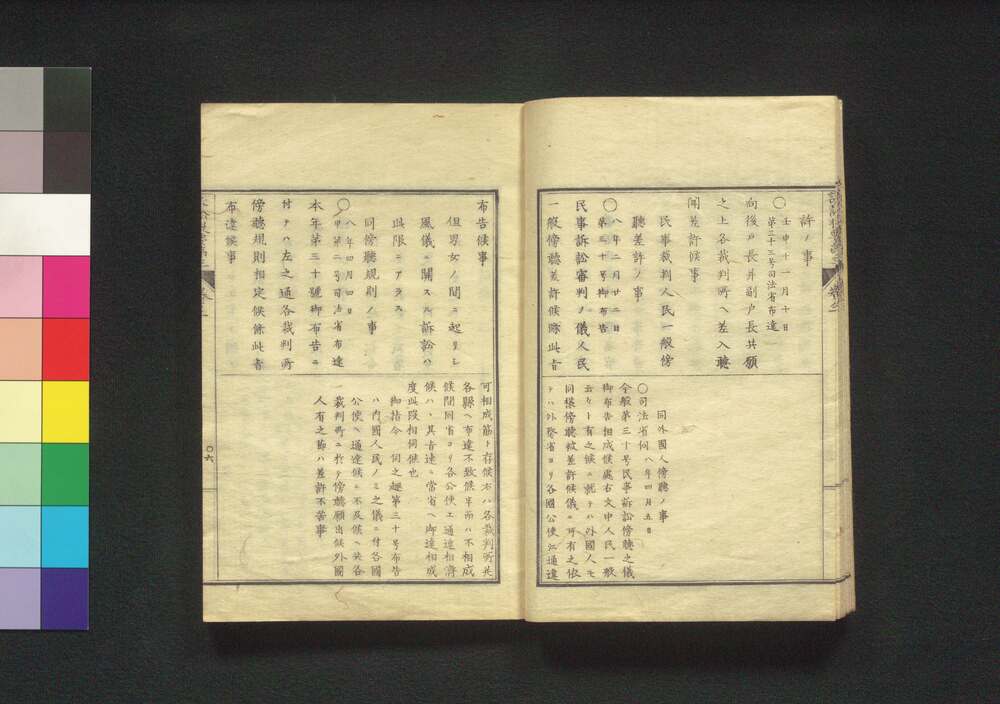 許ノ事
〇壬申十一月十日
第三十三号司法省布達
向後戸長并副戸長共願
之上各裁判所ヘ差入聴
聞差許候事
民事裁判人民一般傍
聴差許ノ事
〇八年二月廿二日
第三十号御布告
民事訴訟審判ノ儀人民
一般傍聴差許候條此旨
同外國人傍聴ノ事
〇司法省伺 八年四月五日
今般第三十号民事訴訟傍聴之儀
御布告相成候處右文中人民一般
云々ト有之候ニ就テハ外國人モ
同様傍聴被差許候儀ニ可有之依
テハ外務省ヨリ各國公使江通達
布告候事
但男女ノ間ニ起リシ
風儀ニ關スル訴訟ハ
此限ニアラス
同傍聴規則ノ事
〇八年四月四日
甲第二号司法省布達
本年第三十號御布告ニ
付テハ左之通各裁判所
傍聴規則相定候條此旨
布達候事
可相成筋ト存候右ハ各裁判所并
各縣ヘ布達不致候半而ハ不相成
候間同省ヨリ各公使エ通達相濟
候ハヽ其旨速ニ當省ヘ御達相成
度此段相伺候也
御指令 伺之趣第三十号布告
ハ内國人民ノミ之儀ニ付各國
公使ヘ通達候ニ不及候ヘ共各
裁判所ニ於テ傍聴願出候外國
人有之節ハ差許不苦事
〇六